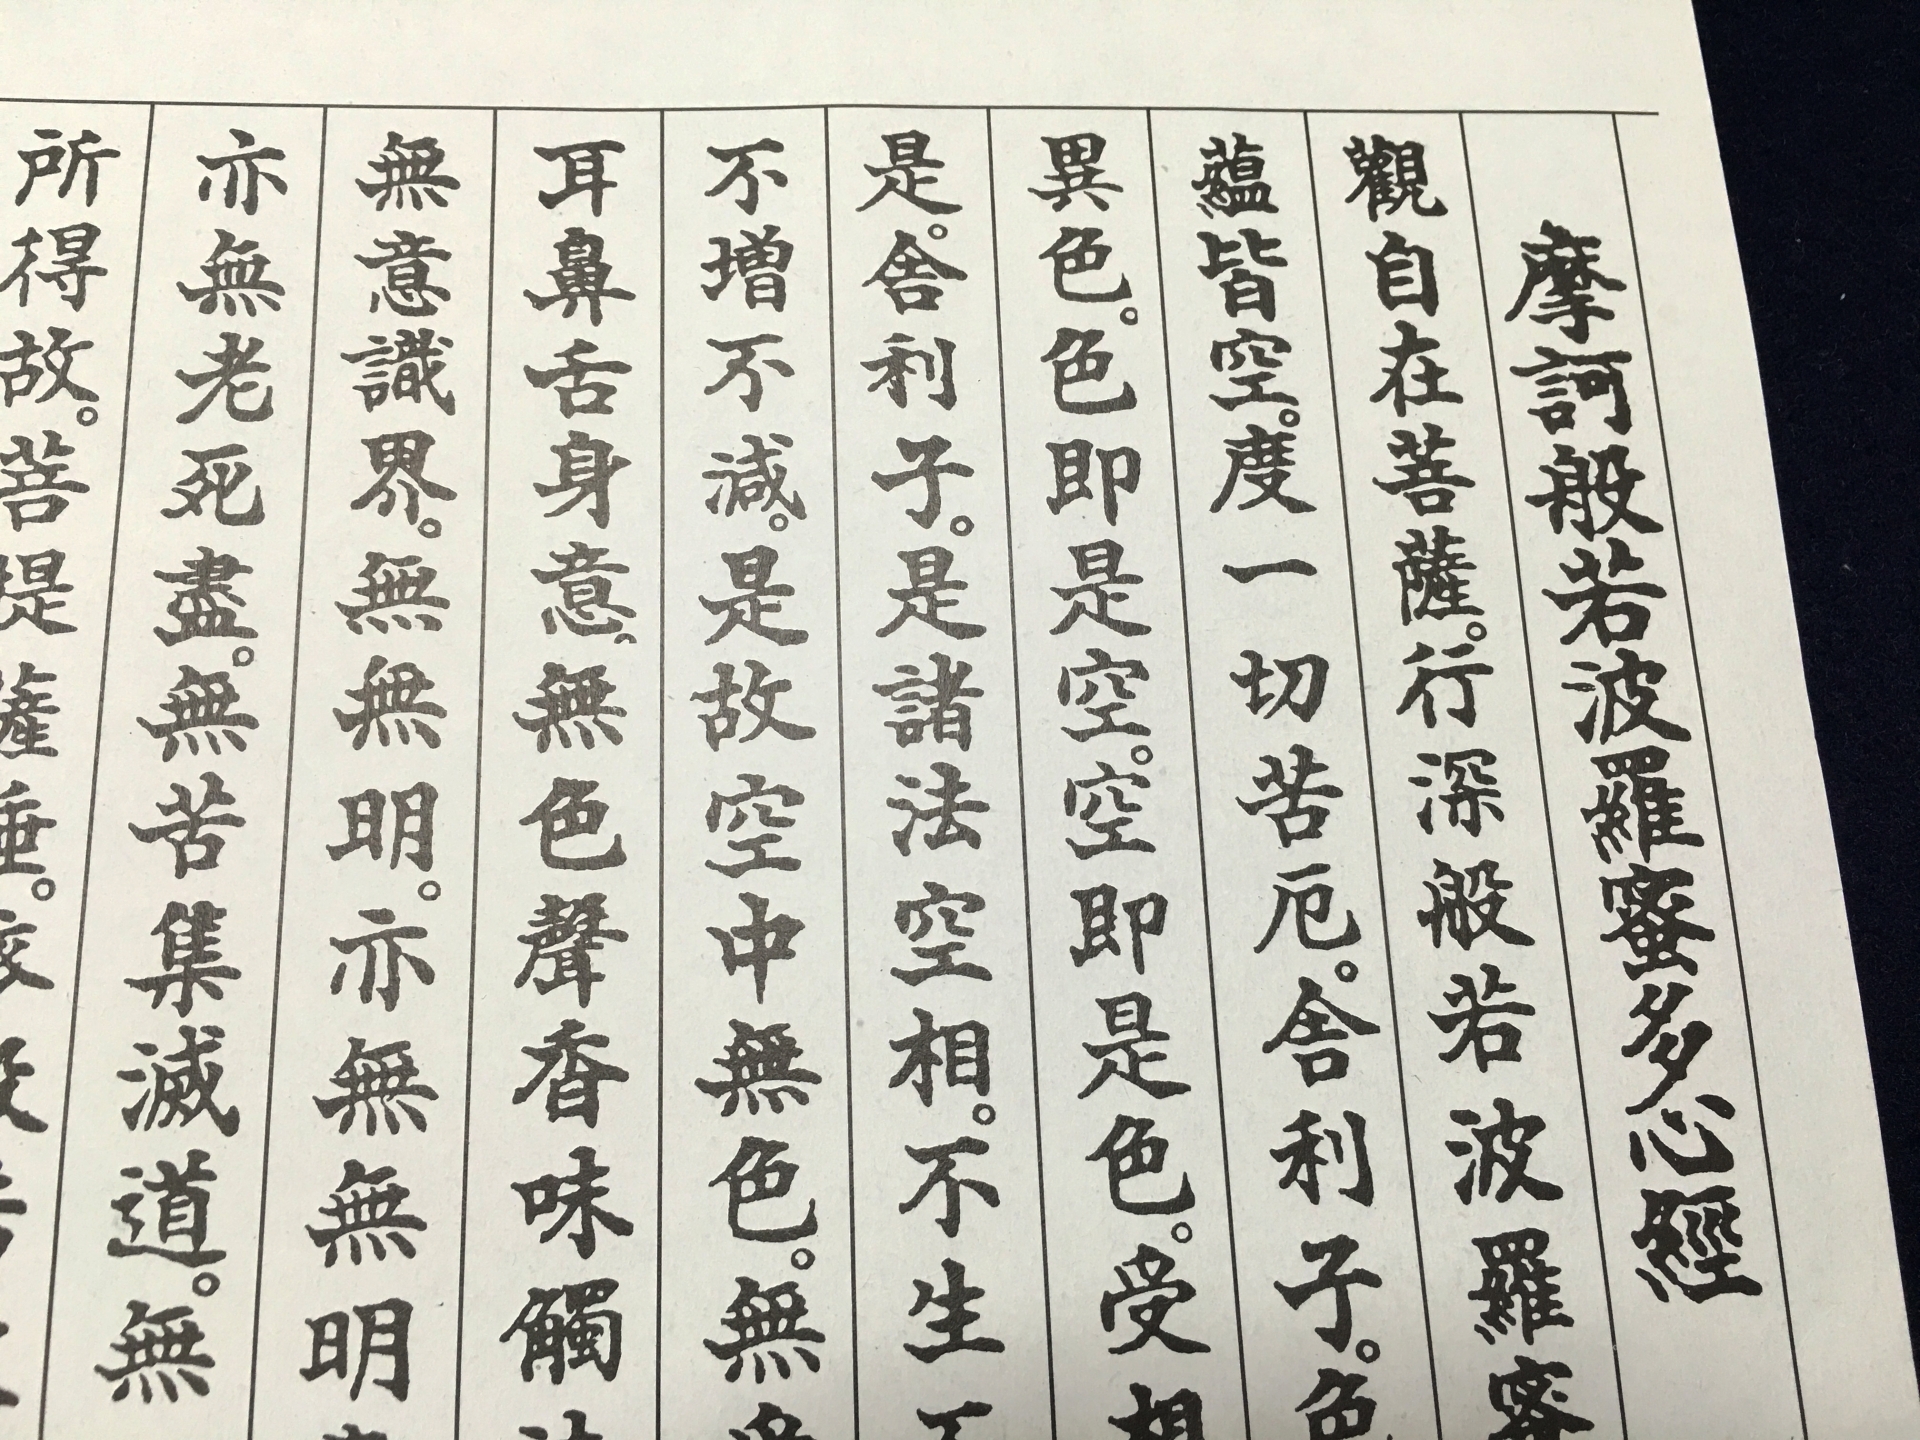 摩訶般若波羅蜜多心經
觀自在菩薩。行深般若波羅蜜
蘊皆空。度一切苦厄。舍利子。色
異色。色即是空。空即是色。受相
是。舍利子。是諸法空相。不生不
不增不減。是故空中無色。無受
耳鼻舌身意、無色聲香味觸法
無意識界。無無明。亦無無明
亦無老死盡。無苦集滅道。無
所得故。菩提薩埵。依般若